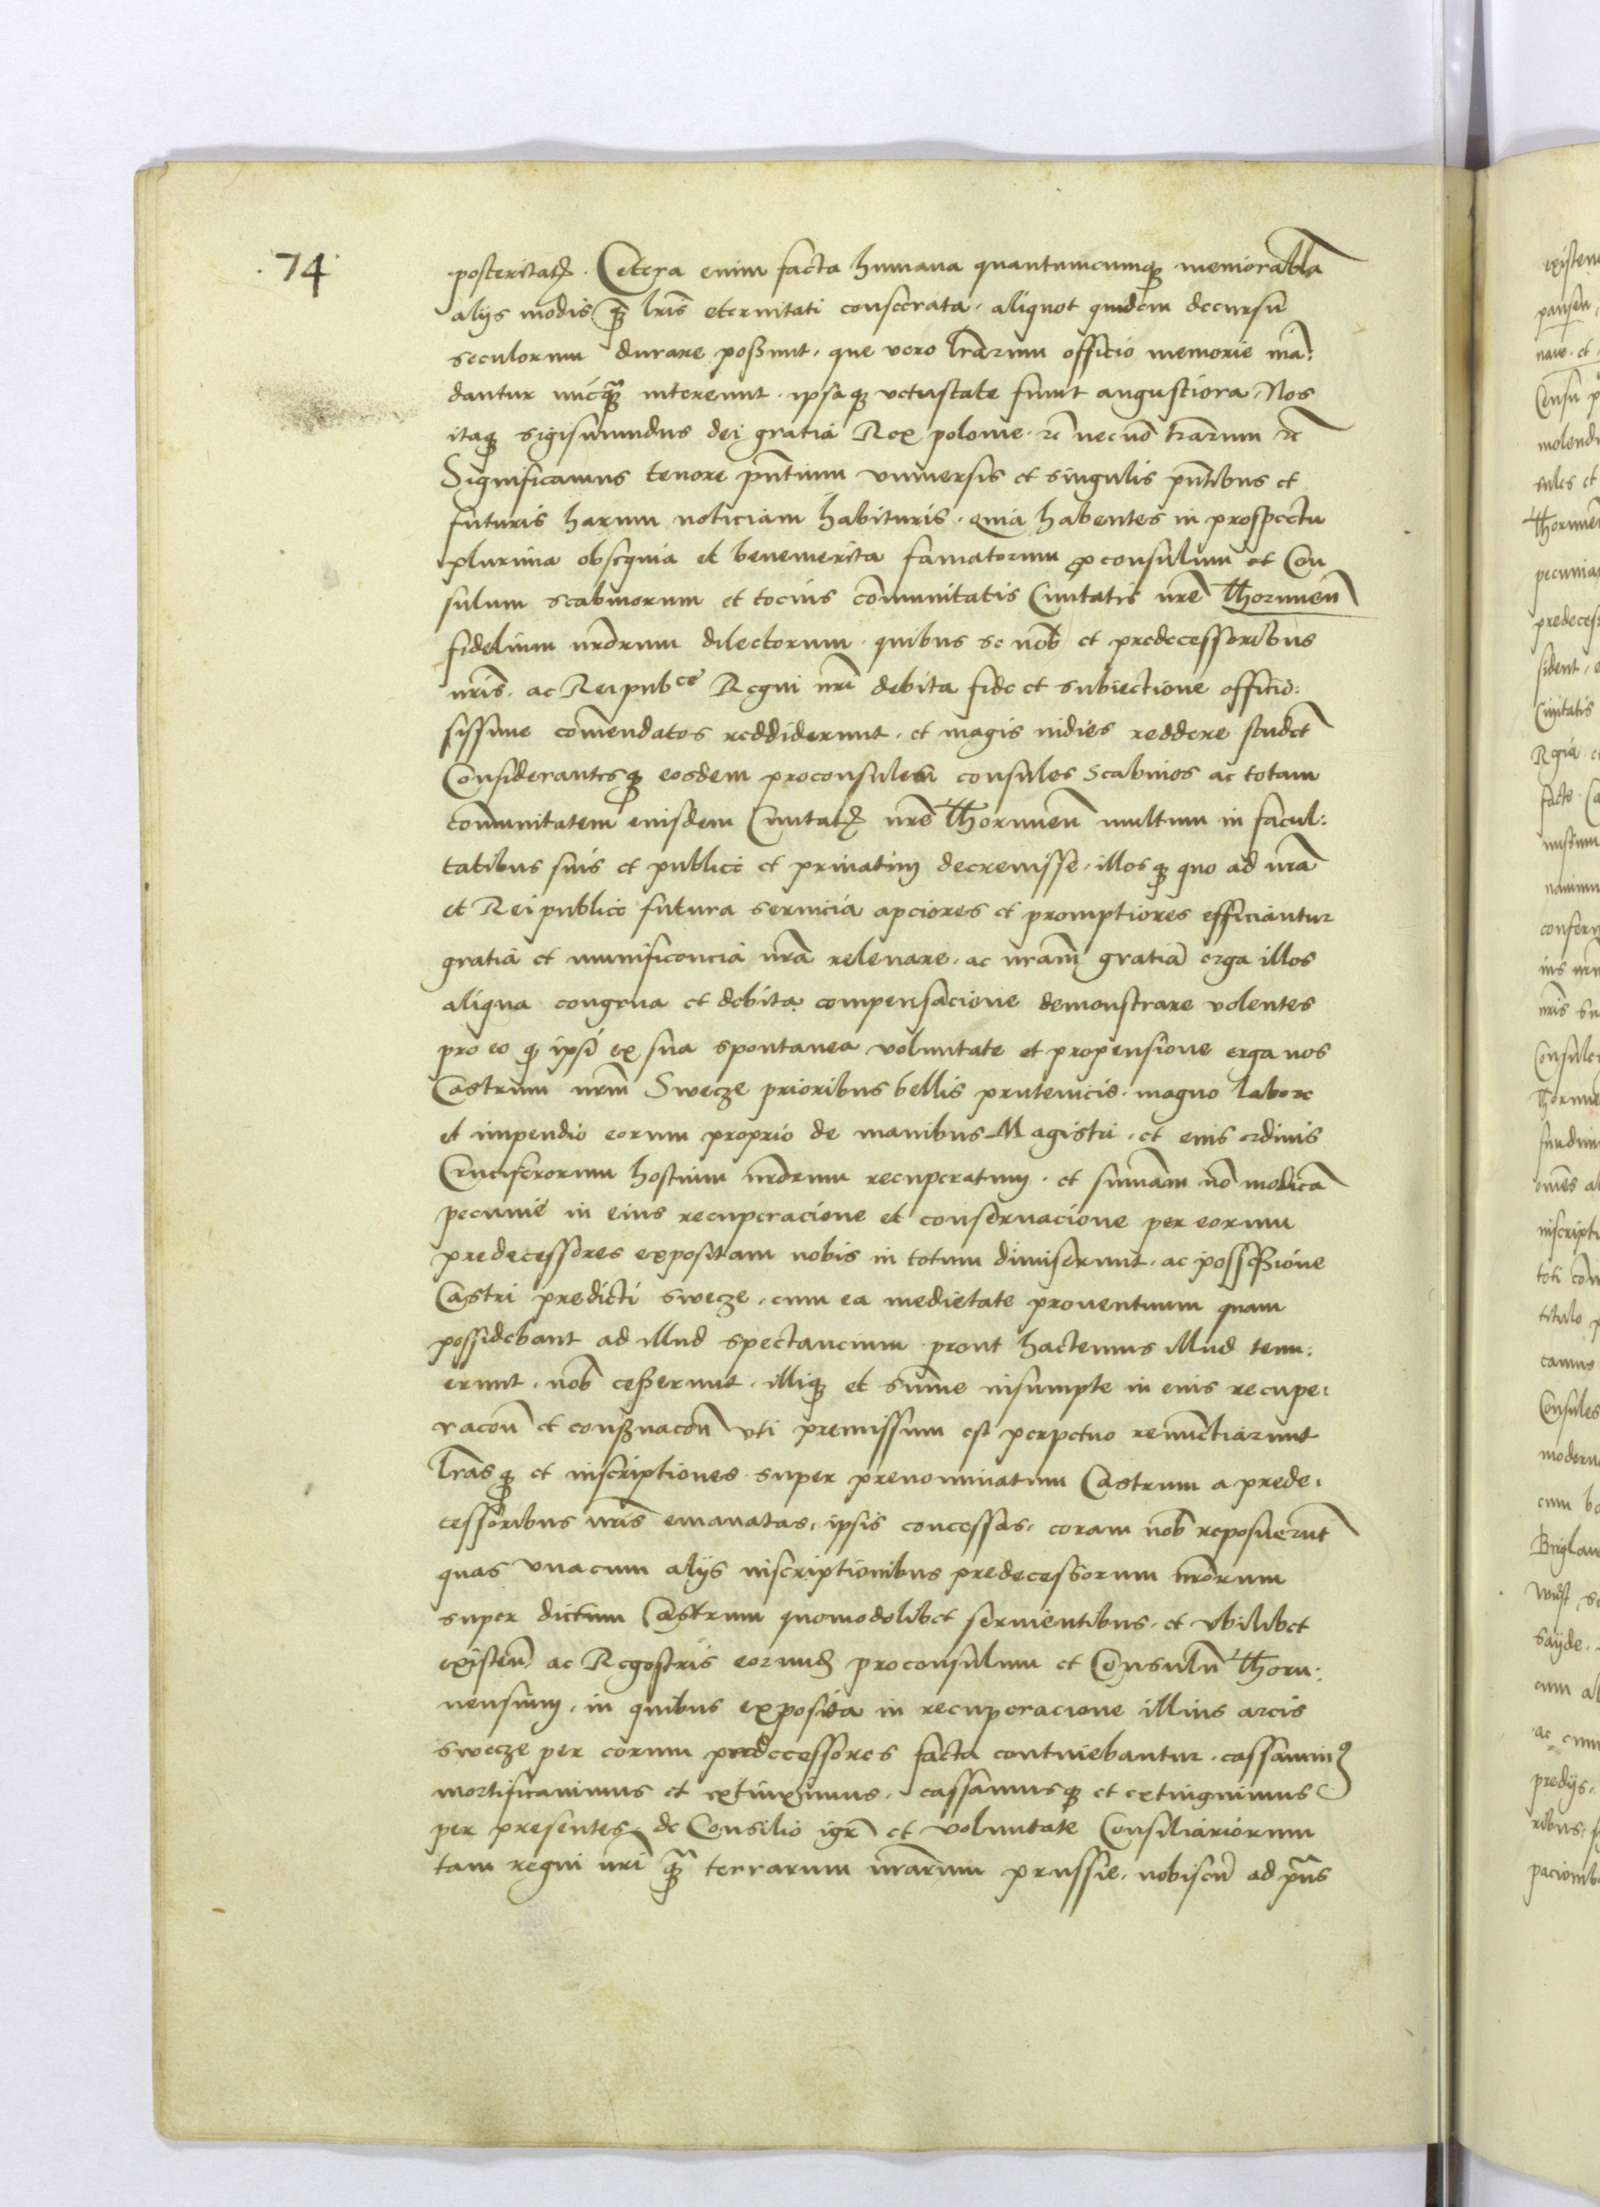 74
posteritatꝭ. Cetera enim facta humana quantumcumqꝫ memorabl̃a
alijs modis qꝫ̃ lr̃is eternitati consecrata, aliquot quidem decursu
seculorum durare possunt, que vero lr̃arum officio memorie mã:
dantur nũcqꝫ̃ intereunt, ipsaqꝫ vetustate sunt angustiora, Nos
itaqꝫ sigismundus dei gratia Rex polonie ⁊c̃ necnõ tr̃arum ⁊c̃
Significamus tenore pñtium vniuersis et singulis pñtibus et
futuris harum noticiam habituris, quia habentes in prospectu
plurima obsequia et benemerita famatorum ꝓconsulum et Con
sulum scabinorum et tocius cõmunitatis Ciuitatis nr̃e Thorunen̄
fidelium nr̃orum dilectorum, quibus se nob̃ et predecessoribus
nr̃is, ac Reipub^ce Regni nr̃i debita fide et subiectione officio:
sissime cõmendatos reddiderunt, et magis indies reddere studet̃
Considerantesqꝫ eosdem proconsules consules scabinos ac totam
cõmunitatem eiusdem Ciuitatꝭ nr̃e Thorunen̄ multum in facul:
tatibus suis et publice et priuatim decreuisse, illosqꝫ quo ad nr̃a
et Reipublice futura seruicia apciores et promptiores efficiantur
gratia et munificencia nr̃a releuare, ac nr̃am gratiã erga illos
aliqua congrua et debita compensacione demonstrare volentes
pro eo qꝫ ipsi ex sua spontanea voluntate et propensione erga nos
Castrum nr̃m Swecze prioribus bellis prutenicis, magno labore
et impendio eorum proprio de manibus Magistri, et eius ordinis
Cruciferorum hostium nr̃orum recuperatum, et sum̃am nõ modicã
pecunie in eius recuperacione et conseruacione per eorum
predecessores expositam nobis in totum dimiserunt, ac possessione
Castri predicti swecze, cum ea medietate prouentuum quam
possidebant ad illud spectancium prout hactenus illud tenu:
erunt, nob̃ cesserunt, illiqꝫ et sum̃e insumpte in eius recupe:
racon̄ et conßuacon̄ vti premissum est perpetuo renunctiarunt
Lr̃asqꝫ et inscriptiones super prenominatum Castrum a prede:
cessoribus nr̃is emanatas, ipsis concessas, coram nob̃ reposuerũt
quas vnacum alijs inscriptionibus predecessorum nr̃orum
super dictum Castrum quomodolibet seruientibus, et vbilibet
existen̄ ac Regestris eorundẽ proconsulum et Consulũ Thoru:
nensium, in quibus exposita in recuperacione illius arcis
swecze per eorum predecessores facta continebantur, cassauimꝰ
mortificauimus et extinximus, cassamusqꝫ et extinguimus
per presentes, de Consilio igr̃ et voluntate Consiliariorum
tam regni nr̃i qꝫ̃ terrarum nr̃arum prussie, nobiscũ ad pñs